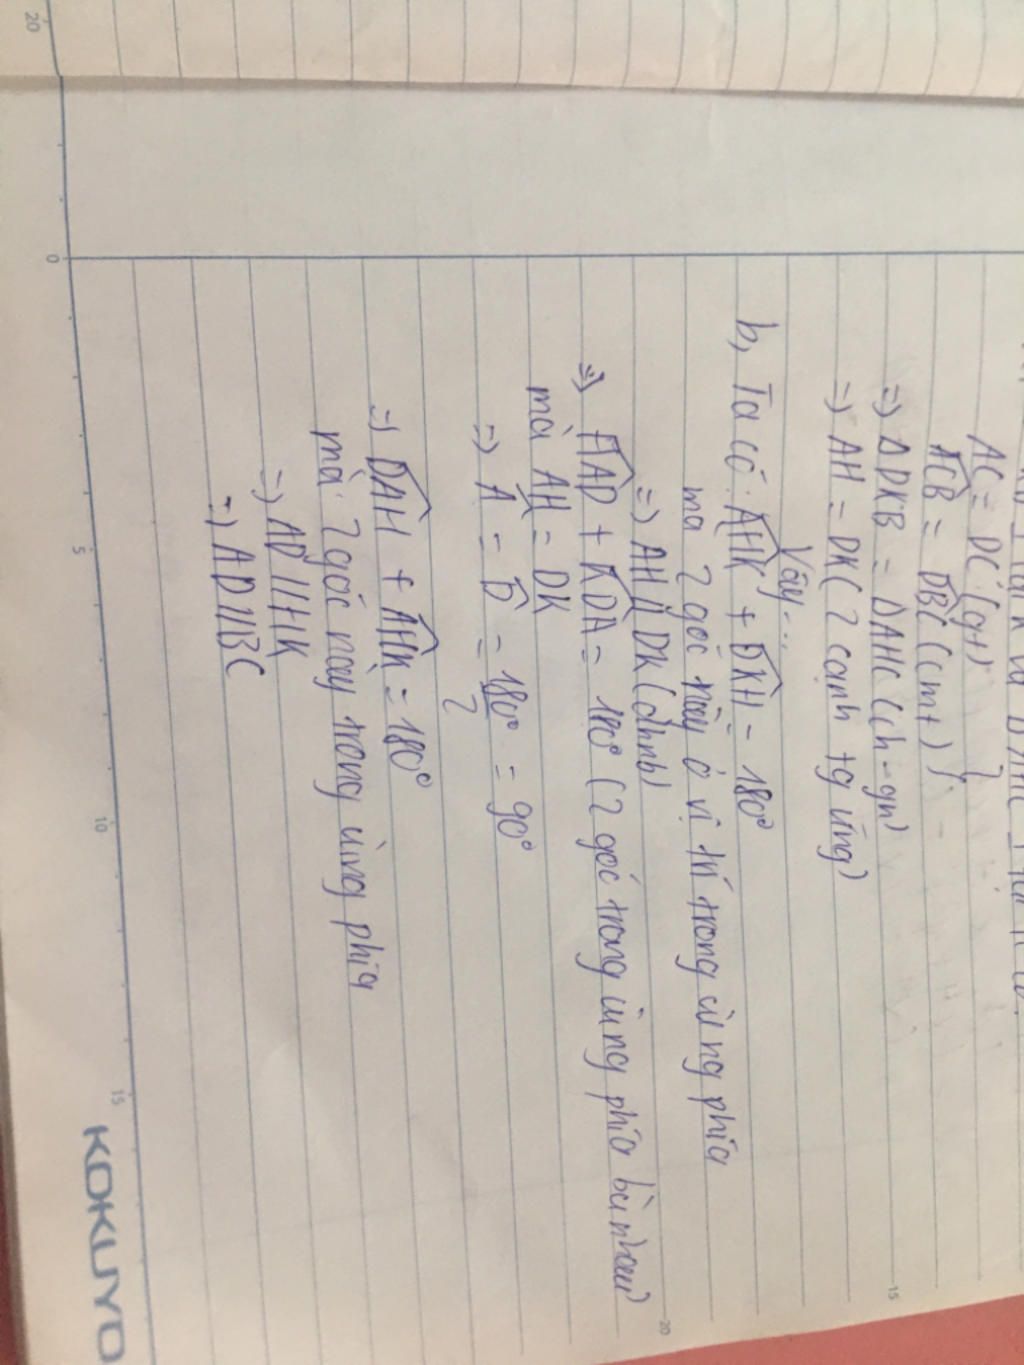 AC = DC (gt)
ACB = DBC (cmt)
=) ΔDKB = ΔAHC (ch-gn)
=) AH = DK (2 cạnh tg ứng)
Vậy...
b, Ta có: AHK + DKH = 180°
mà 2 góc này ở vị trí trong cùng phía
=) AH // DK (dhnb)
=) HAD + KDA = 180° (2 góc trong cùng phía bù nhau)
mà AH = DK
=) A = D = 180°/2 = 90°
=) DAH + AHK = 180°
mà 2 góc này trong cùng phía
=) AD // HK
=) AD // BC
KOKUYO
0
5
10
15
20
15
20